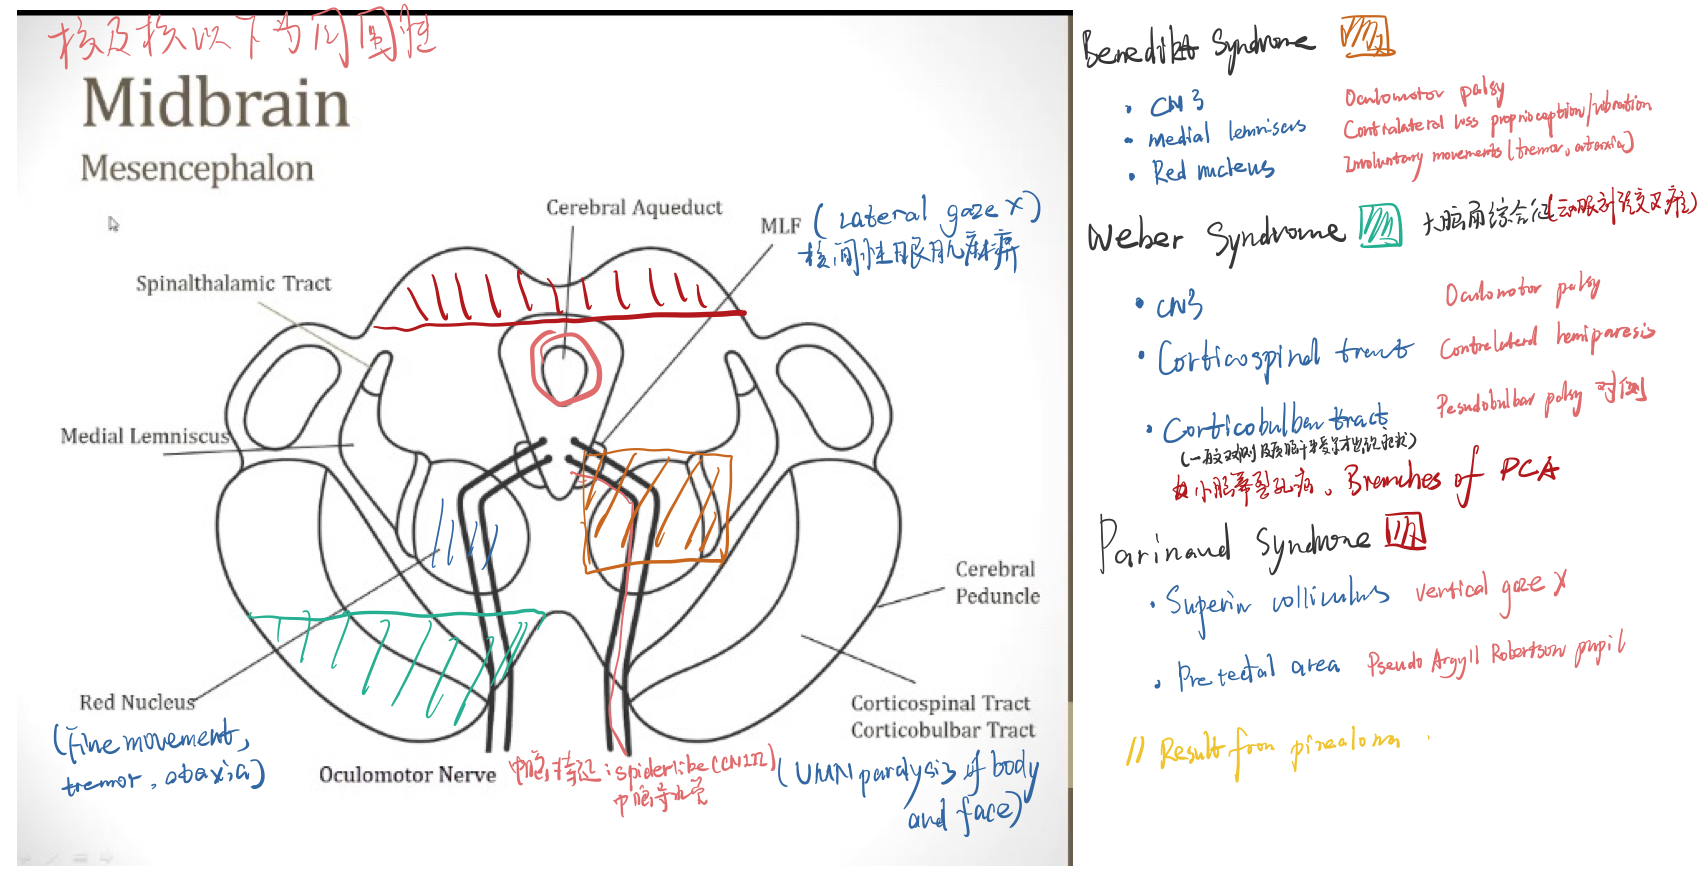 核及核以下为周围性
Midbrain
Mesencephalon
Cerebral Aqueduct
MLF (Lateral gaze X)
核间性眼肌麻痹
Spinalthalamic Tract
Medial Lemniscus
Red Nucleus
(Fine movement,
tremor, ataxia)
Oculomotor Nerve
中脑特征: spiderlike (CNIII)
中脑导水管
Cerebral
Peduncle
Corticospinal Tract
Corticobulbar Tract
(UMN paralysis of body
and face)
Benedikt Syndrome
• CN3 Oculomotor palsy
• medial lemniscus Contralateral loss proprioception/vibration
• Red nucleus Involuntary movements (tremor, ataxia)
Weber Syndrome 大脑脚综合征(动眼神经交叉瘫)
• CN3 Oculomotor palsy
• Corticospinal tract Contralateral hemiparesis
• Corticobulbar tract Pesudobulbar palsy 对侧
小脑幕裂孔疝、Branches of PCA
Parinaud Syndrome
• Superior colliculus vertical gaze X
• Pretectal area Pseudo Argyll Robertson pupil
// Result from pinealoma